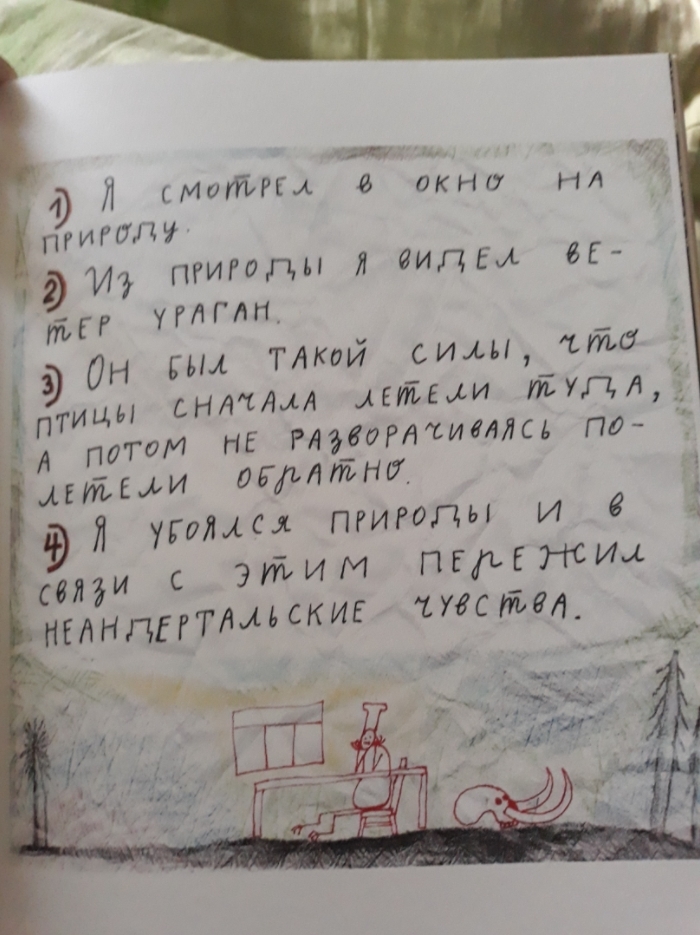 1) Я СМОТРЕЛ В ОКНО НА
ПРИРОДУ.
2) ИЗ ПРИРОДЫ Я ВИДЕЛ ВЕ-
ТЕР УРАГАН.
3) ОН БЫЛ ТАКОЙ СИЛЫ, ЧТО
ПТИЦЫ СНАЧАЛА ЛЕТЕЛИ ТУДА,
А ПОТОМ НЕ РАЗВОРАЧИВАЯСЬ ПО-
ЛЕТЕЛИ ОБРАТНО.
4) Я УБОЯЛСЯ ПРИРОДЫ И В
СВЯЗИ С ЭТИМ ПЕРЕЖИЛ
НЕАНДЕРТАЛЬСКИЕ ЧУВСТВА.